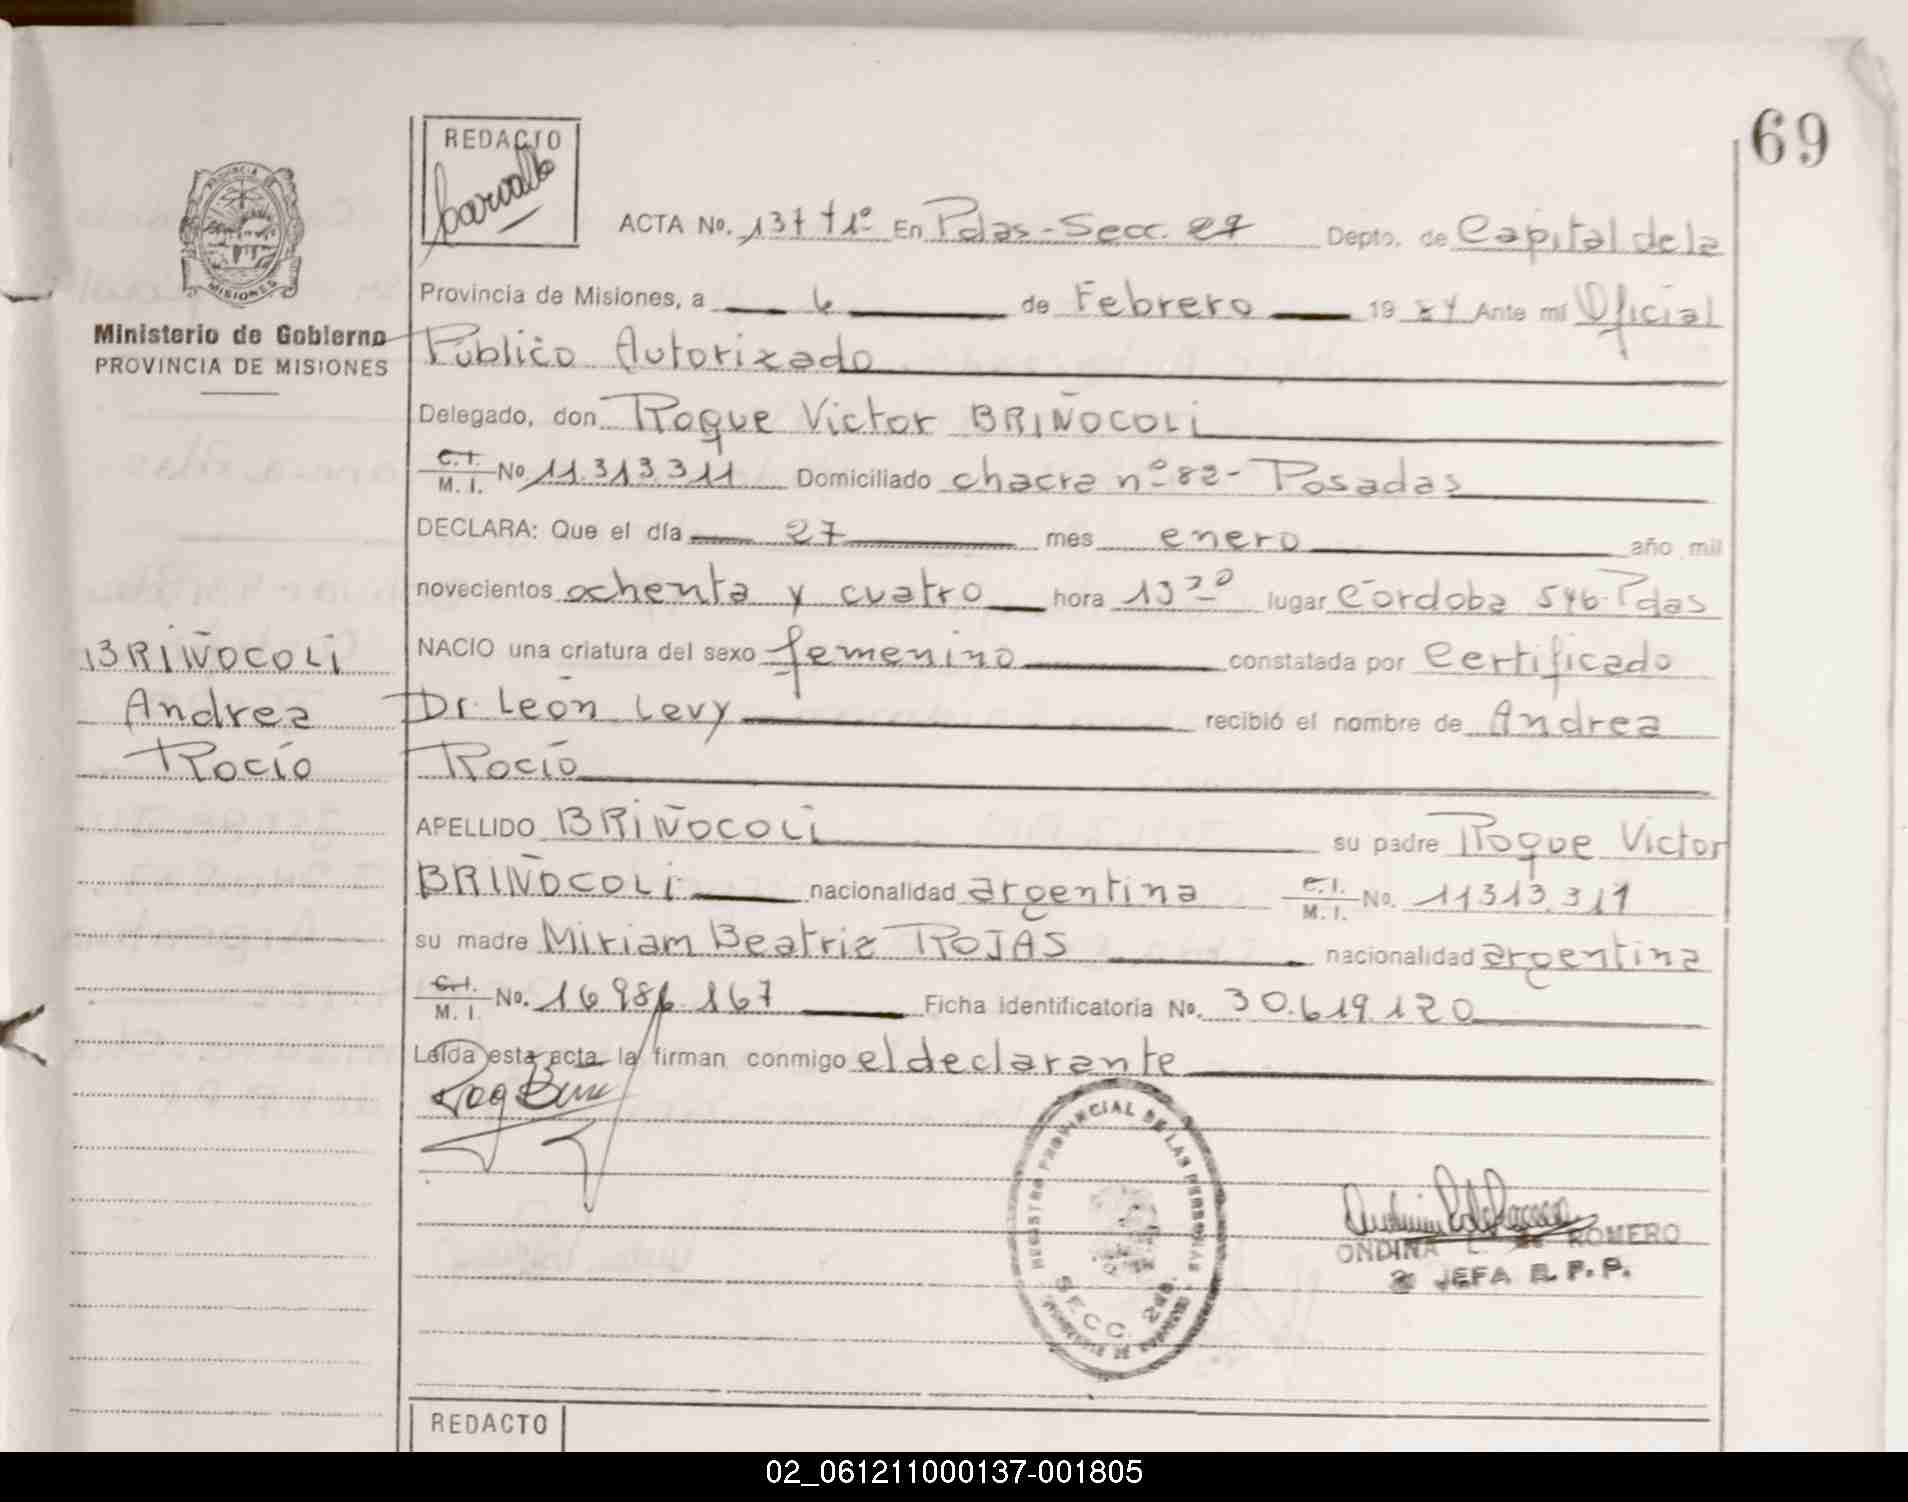 69
REDACTO
Carvallo
ACTA No. 137 t1º En Pdas-Secc. 2ª Depto. de Capital de la
Provincia de Misiones, a 6 de Febrero 1984 Ante mí Oficial
Público Autorizado
Delegado, don Roque Victor BRIÑOCOLI
C.I. M.I. No. 11.313.311 Domiciliado chacra nº 82- Posadas
DECLARA: Que el día 27 mes enero año mil
novecientos ochenta y cuatro hora 13 30 lugar Córdoba 546 Pdas
NACIO una criatura del sexo femenino constatada por Certificado
Dr. León Levy recibió el nombre de Andrea
Rocío
APELLIDO BRIÑOCOLI su padre Roque Victor
BRIÑOCOLI nacionalidad argentina C.I. M.I. No. 11313.311
su madre Miriam Beatriz ROJAS nacionalidad argentina
C.I. M.I. No. 16 986 167 Ficha identificatoria No. 30.619.120
Leída esta acta la firman conmigo el declarante
Ministerio de Gobierno
PROVINCIA DE MISIONES
BRIÑOCOLI
Andrea
Rocío
PROVINCIA DE
MISIONES
REGISTRO PROVINCIAL DE LAS PERSONAS
SECC. 2da.
ONDINA L. de ROMERO
JEFA R. P. P.
REDACTO
02_061211000137-001805